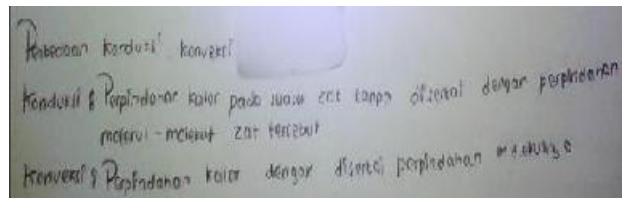 Perbedaan konduksi konveksi
Konduksi : Perpindahan kalor pada suatu zat tanpa disertai dengan perpindahan
molekul-molekul zat tersebut
Konveksi : Perpindahan kalor dengan disertai perpindahan